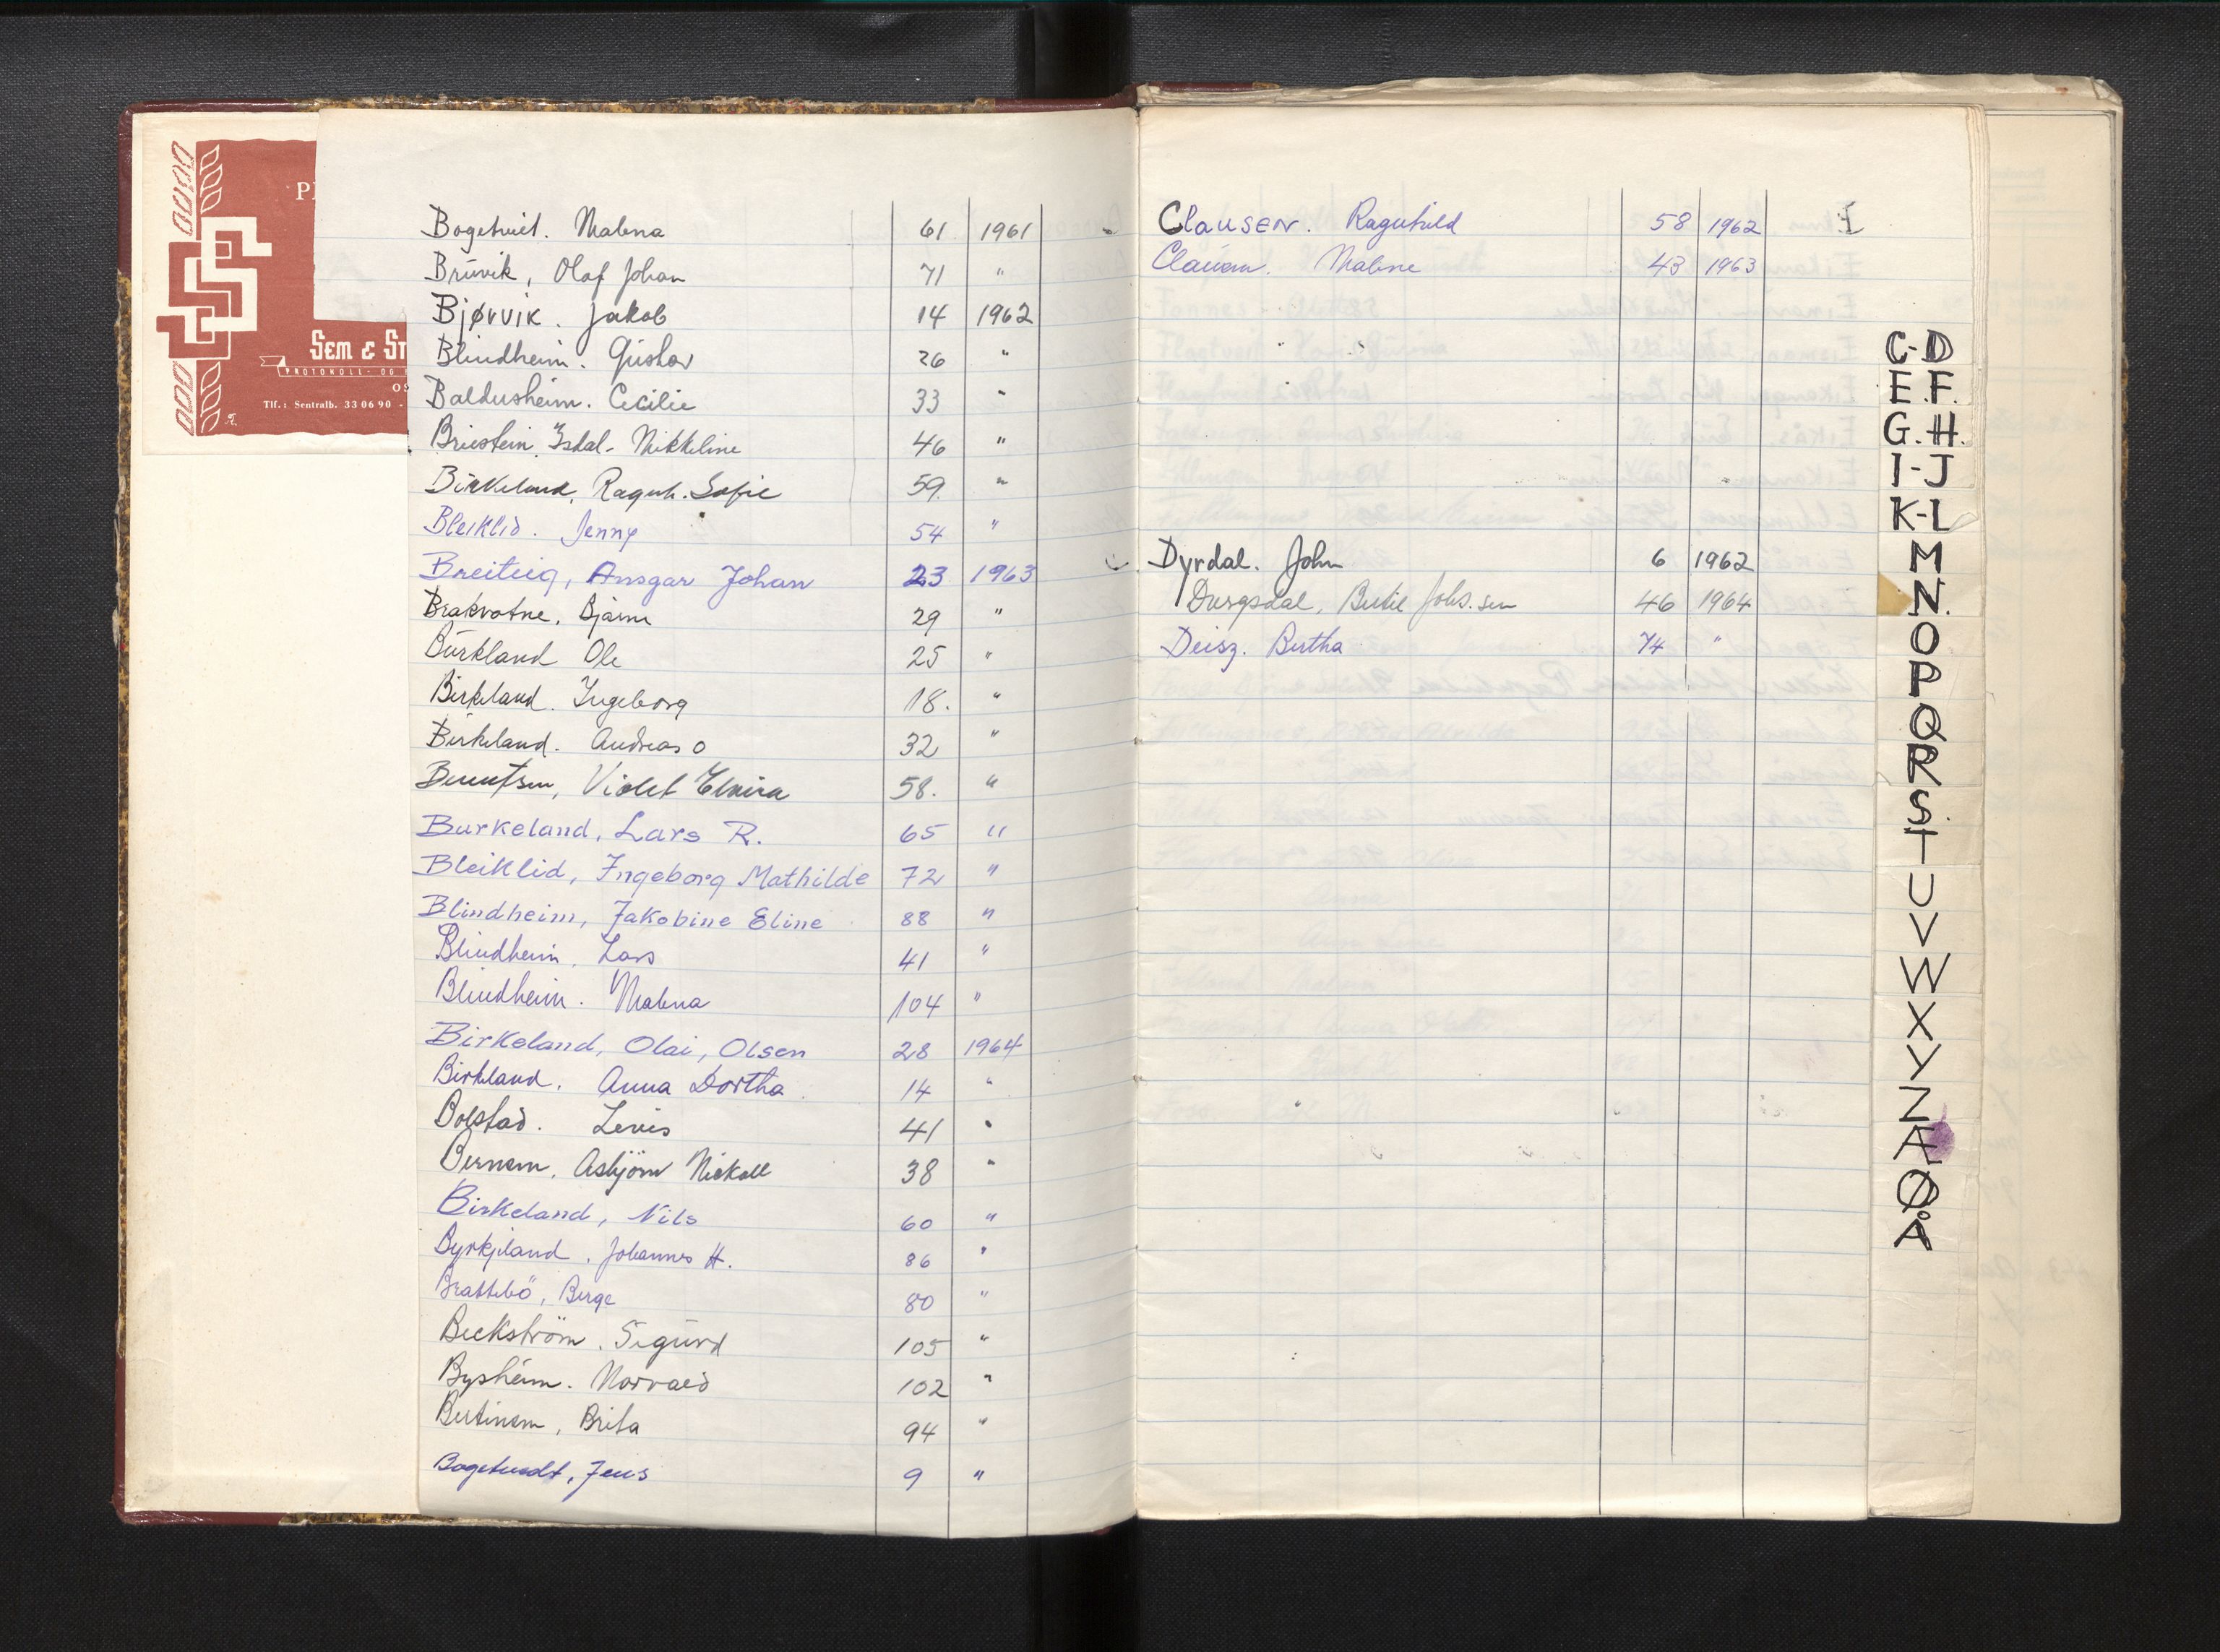 P
SEM & ST
PROTOKOLL- OG
OS
Tlf.: Sentralb. 33 06 90 -
Bogetveit. Malena 61 1961
Brüvik, Olaf Johan 71 "
Bjørvik. Jakob 14 1962
Blindheim. Güstav 26 "
Baldersheim. Cecilie 33 "
Istdal- Nikkeline 46 "
Birkeland, Ragnh. Sofie 59 "
Bleiklid. Jenny 54 "
Breiteig, Ansgar Johan 23 1963
Brakvatne, Bjarne 29 "
Bürkland Ole 25 "
Birkeland. Ingeborg 18. "
Birkeland. Andreas O 32 "
Berntsen, Violet Elvira 58. "
Burkeland, Lars R. 65 "
Bleiklid, Ingeborg Mathilde 72 "
Blindheim, Jakobine Eline 88 "
Blindheim. Lars 41 "
Blindheim. Malena 104 "
Birkeland, Olai, Olsen 28 1964
Birkeland. Anna Dortha 14 "
Bolstad. 41 "
Bernsen, Asbjörn 38 "
Birkeland, Nils 60 "
Byrkjeland. Johannes H. 86 "
Brattebö, Berge 80 "
Beckström. Sigürd 105 "
Bysheim. Norvald 102 "
Bertinsen, Brita 94 "
Bogetvedt, Jens 9 "
Clausen. Ragnhild 58 1962
Clausen. Malene 43 1963
Dyrdal. John 6 1962
Bertil Johs.sen 46 1964
Deisz. Bertha 74 "
C-D
E.F.
G.H.
I-J
K-L
M
N.
O
P
Q
R
S.
T
U
V
W
X
Y
Z
Æ
Ø
Å